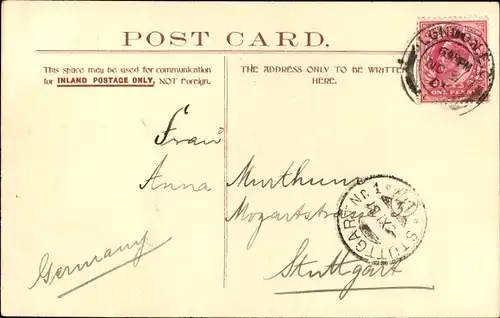 POST CARD.
This space may be used for communication
for INLAND POSTAGE ONLY, NOT Foreign.
THE ADDRESS ONLY TO BE WRITTEN
HERE.
LONDON
ONE PENNY
Frau
Anna Murthum
Mozartstrasse
Stuttgart
Germany
STUTTGART No. 1